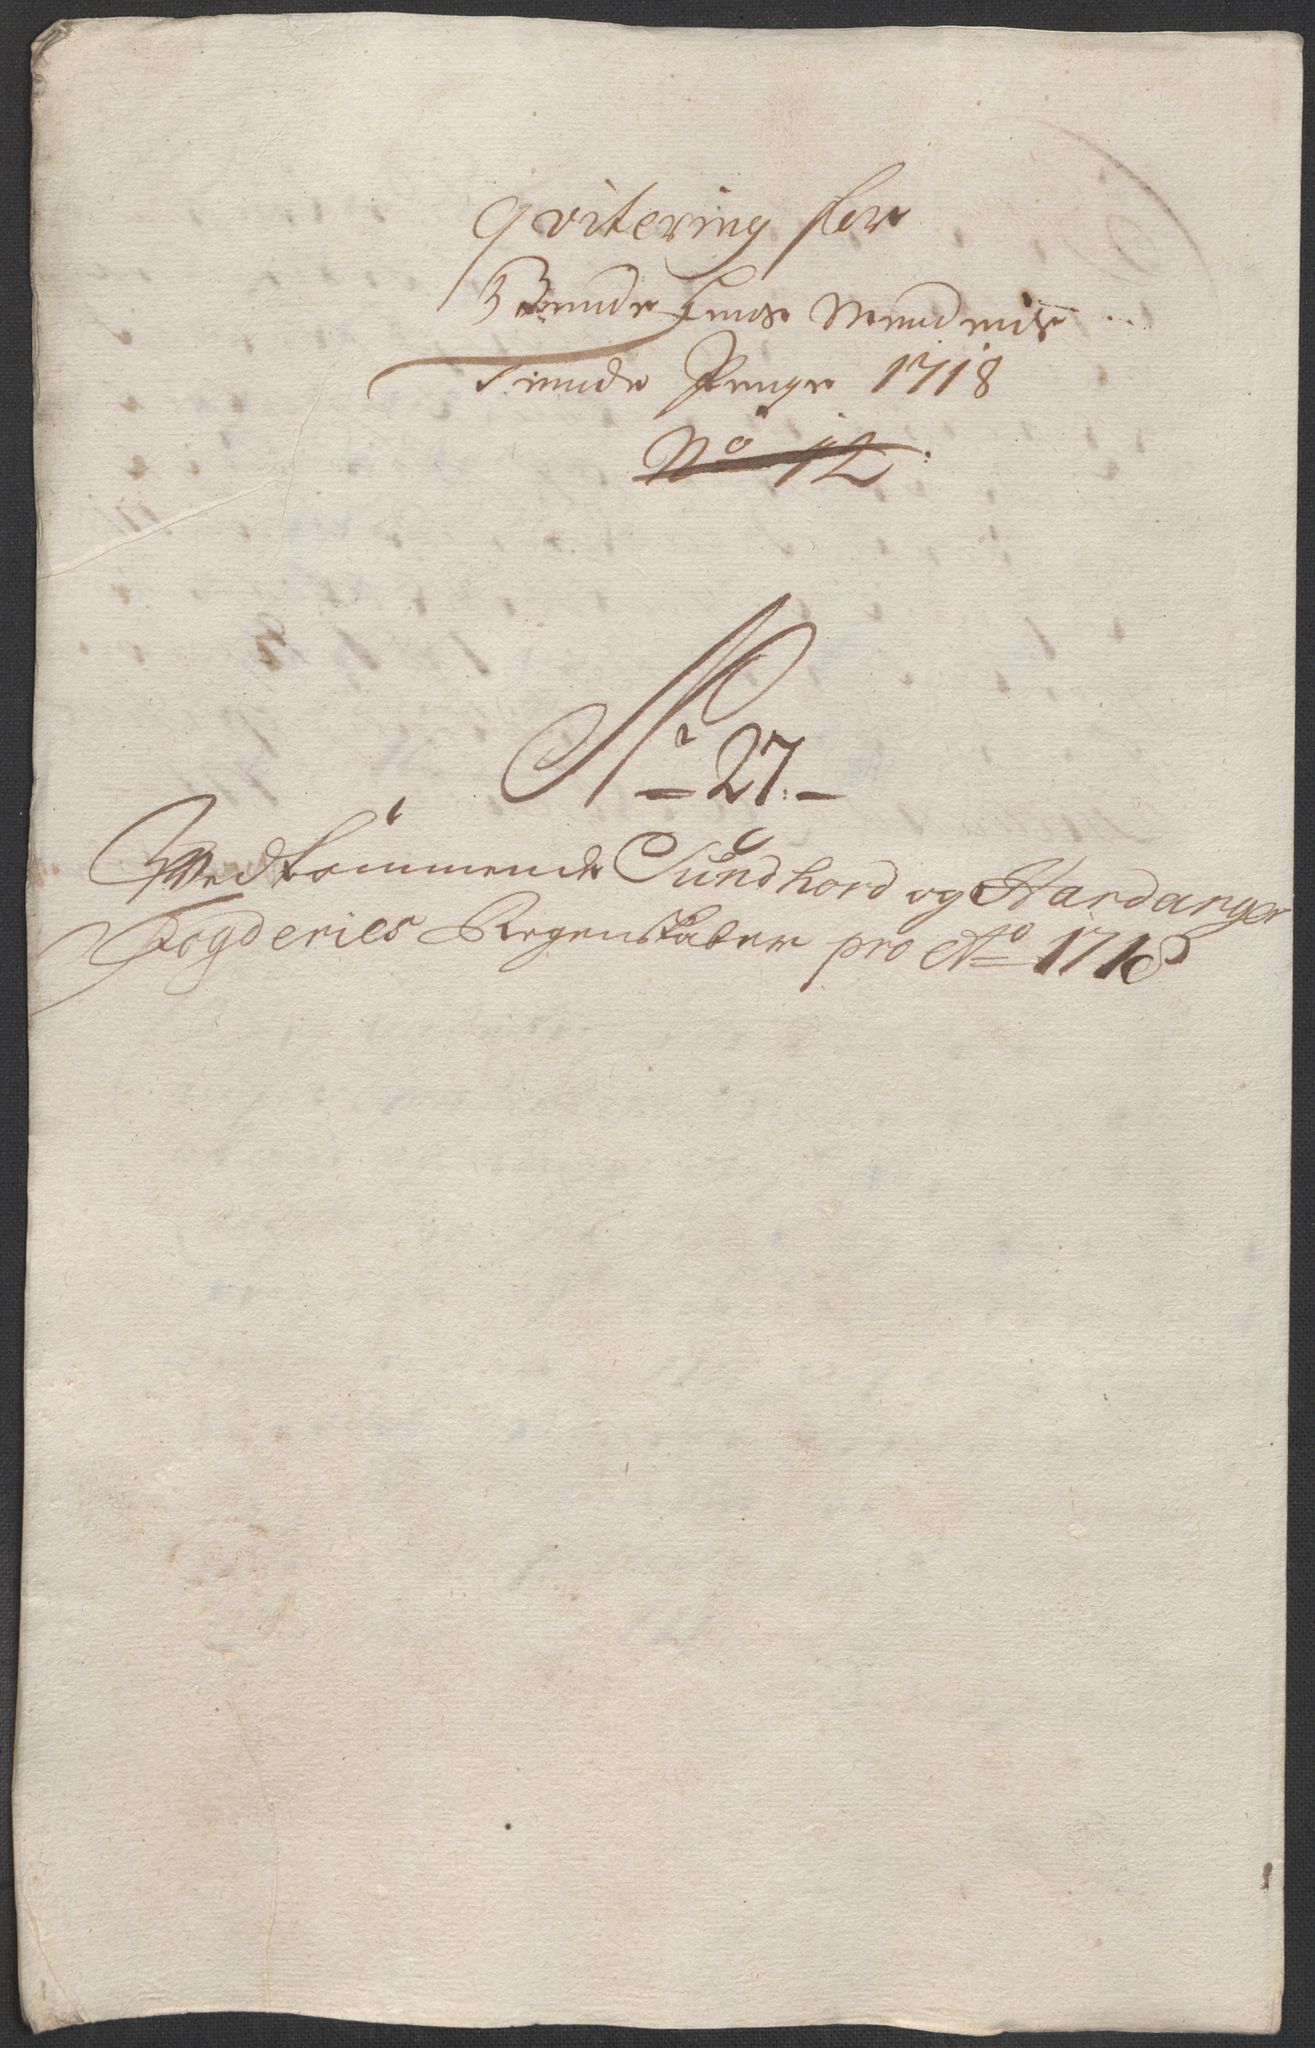 qvitering for
3 Bunde Lens Mændenis
Tiende Penge 1718
No 12
No 27.
Vedkommende Sundhord og Hardanger
Fogderies Regenskaber pro Ao 1718